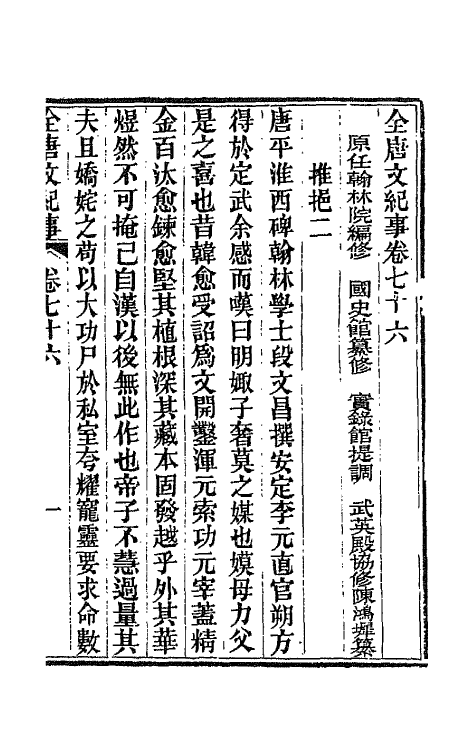 全唐文紀事卷七十六
原任翰林院編修　國史館纂修　實錄館提調　武英殿協修陳鴻墀纂
推挹二
唐平淮西碑翰林學士段文昌撰安定李元直官朔方
得於定武余感而嘆曰明媺子奢莫之媒也嫫母力父
是之喜也昔韓愈受詔爲文開鑿渾元索功元宰蓋精
金百汰愈鍊愈堅其植根深其藏本固發越乎外其華
煜然不可掩已自漢以後無此作也帝子不慧過量其
夫且嬌姹之苟以大功尸於私室夸耀寵靈要求命數
全唐文紀事　卷七十六　一